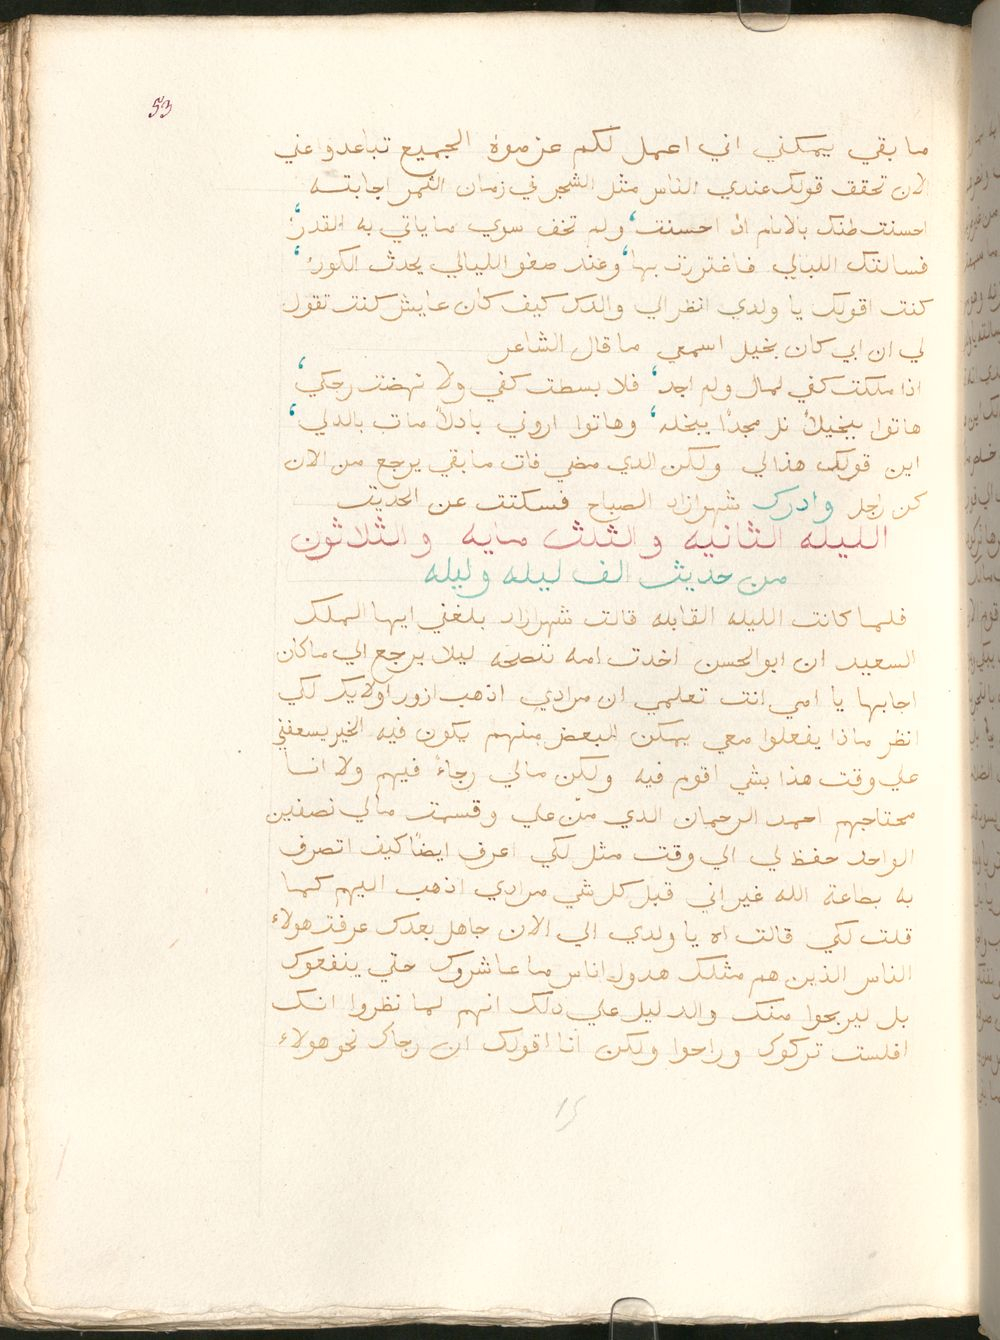 53
ما بقي يمكني اني اعمل لكم عزموة الجميع تباعدو عني
الان تحقق قولك عندي الناس مثل الشجر في زمان الثمر اجابته
احسنت ظنك بالايام اذ احسنت، ولم تخف سوى ما ياتي به القدرُ،
فسالتك الليالي فاغتررت بها، وعند صفو الليالي يحدث الكورُ،
كنت اقولك يا ولدي انظر الي والدك كيف كان عايش كنت تقول
لي ان ابي كان بخيل اسمعي ما قال الشاعر
اذا ملكت كفي لمال ولم اجد، فلا بسطت كفي ولا نهضت رجلي،
هاتوا بخيلاً نل مجدًا ببخله، وهاتوا اروني بادلاً مات بالدلي،
اين قولك هذا لي ولكن الدي مضي فات ما بقي يرجع من الان
كن راجل وادرك شهرازاد الصباح فسكتت عن الحديت
الليله الثانيه والثلث مايه والثلاثون
من حديث الف ليله وليله
فلما كانت الليله القابله قالت شهرازاد بلغني ايها الملك
السعيد ان ابو الحسن اخدت امه تنصحه ليلا يرجع الي ما كان
اجابها يا امي انت تعلمي ان مرادي اذهب ازور اولايك لكي
انظر ماذا يفعلوا معي يمكن البعض منهم يكون فيه الخير يسعفني
علي وقت هذا بشي اقوم فيه ولكن مالي رجاءً فيهم ولا انا
محتاجهم احمد الرحمان الدي منّ علي وقسمت مالي نصفين
الواحد حفظ لي الي وقت مثل لكي اعرف ايضًا كيف اتصرف
به بطاعة الله غير اني قبل كل شي مرادي اذهب اليهم كما
قلت لكي قالت اه يا ولدي الي الان جاهل بعدك عرفت هولاء
الناس الذين هم مثلك هدول اناس ما عاشروك حتي ينفعوك
بل ليربحوا منك والدليل علي دلك انهم لما نظروا انك
افلست تركوك وراحوا ولكن انا اقولك ان رجاك نحو هولاء
15